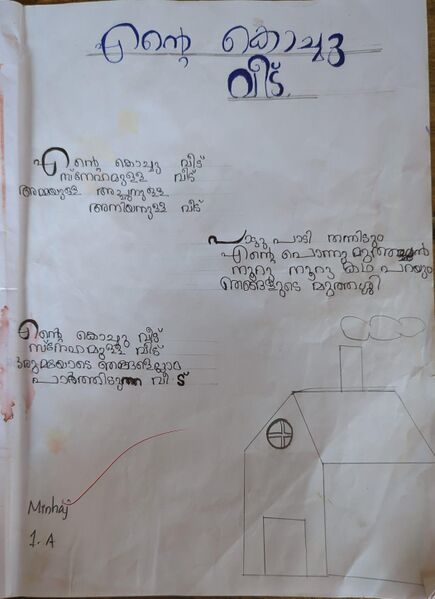 എന്റെ കൊച്ചു
വീട്
എന്റെ കൊച്ചു വീട്
സ്നേഹമുള്ള വീട്
അമ്മയുള്ള അച്ഛനുള്ള
അനിയനുള്ള വീട്
പാട്ടു പാടി തന്നിടും
എന്റെ പൊന്നു മുത്തച്ഛൻ
നൂറു നൂറു കഥ പറയും
ഞങ്ങളുടെ മുത്തശ്ശി
എന്റെ കൊച്ചു വീട്
സ്നേഹമുള്ള വീട്
ഒരുമയോടെ ഞങ്ങളെല്ലാം
പാർത്തിടുന്ന വീട്
Minhaj
1. A